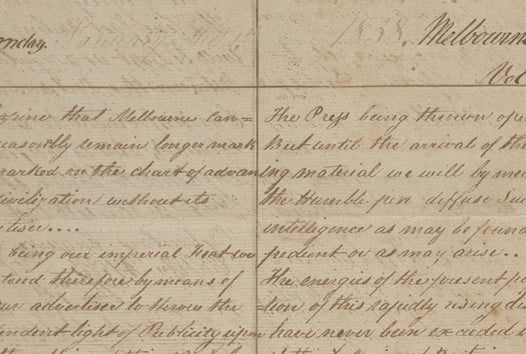 onday. January 1838. Melbourn
Vol
gine that Melbourne can=
easonbly remain longer mark
arked on the chart of advan
ivilization without its
tiser....
being our imperial Seat we
tend therefore by means of
ur advertiser to throw the
endent light of Publicity upon
The Press being thrown ope
But until the arrival of the
ing material we will by me
the Humble pen diffuse Suc
intelligence as may be found
pedient or as may arise..
The energies of the present po
tion of this rapidly rising di
have never been exceeded